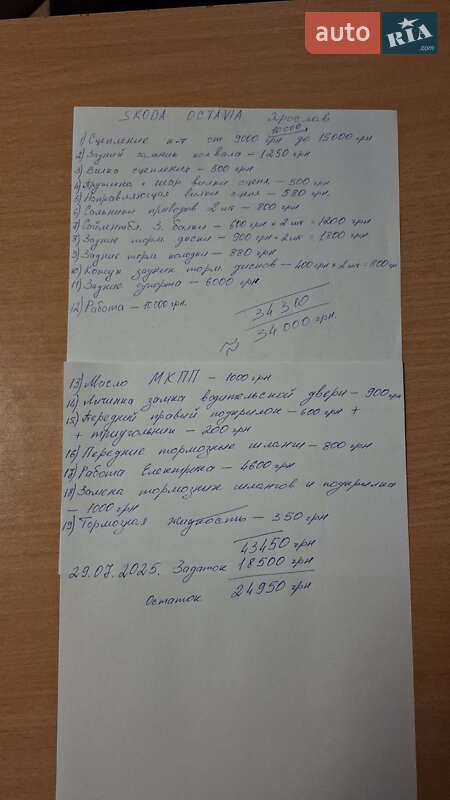 auto RIA .com
SKODA OCTAVIA Ярослав
10000
1) Сцепление к-т от 9000 грн до 15000 грн
2) Задний сальник колвала - 1250 грн
3) Вилка сцепления - 500 грн
4) Пружина + шар вилки сцепл. - 500 грн
5) Направляющая вилки сцепл - 580 грн.
6) Сальники приводов 2 шт - 800 грн
7) Сайлентбл. З. балки - 600 грн × 2 шт = 1200 грн
8) Задние торм. диски - 900 грн × 2 шт = 1800 грн
9) Задние торм. колодки - 880 грн
10) Кожух задних торм. дисков - 400 грн × 2 шт = 800 грн
11) Задние суппорта - 6000 грн
12) Работа - 10000 грн.
34 300
≈ 34 000 грн.
13) Масло МКПП - 1000 грн
14) Личинка замка водительской двери - 900 грн
15) Передний правий подкрылок - 600 грн +
+ триугольник - 200 грн
16) Передние тормозные шланги - 800 грн
17) Работа Електрика - 4600 грн
18) Замена тормозних шлангов и подкрылка
- 1000 грн
19) Тормозная жидкость - 350 грн
43450 грн
29.07.2025. Задаток 18500 грн
Остаток 24950 грн